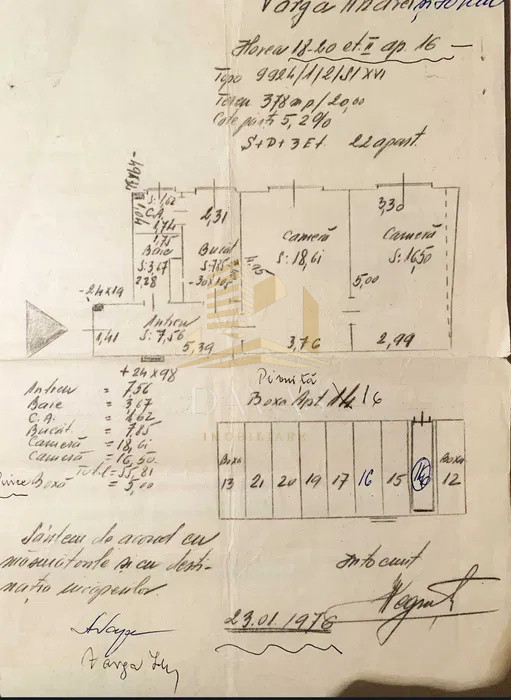 Varga Andrei
Horea 18-20 et. II ap. 16
Topo 9924/1/2/S/XVI
Teren 378 mp/20,00
Cote părți 5,2%
S+D+3Et. 22 apart.
S: 1,62
C.A.
1,74
1,04
2,31
3,30
1,75
Baie
S: 3,67
2,28
Bucăt
S: 7,85
Cameră
S: 18,61
Cameră
S: 16,50
5,00
-24x19
Antreu
S: 7,56
1,41
5,39
3,76
2,99
+24x98
Antreu = 7,56
Baie = 3,67
C.A. = 1,62
Bucăt = 7,85
Cameră = 18,61
Cameră = 16,50
Total = 55,81
Boxă = 5,00
Pivniță
Boxa Apt. 16
IMOBILIARE
Boxa
13
21
20
19
17
16
15
Boxa
12
Sîntem de acord cu
măsurătorile și cu desti-
nația încăperilor.
Întocmit
23.01.1976
Varga